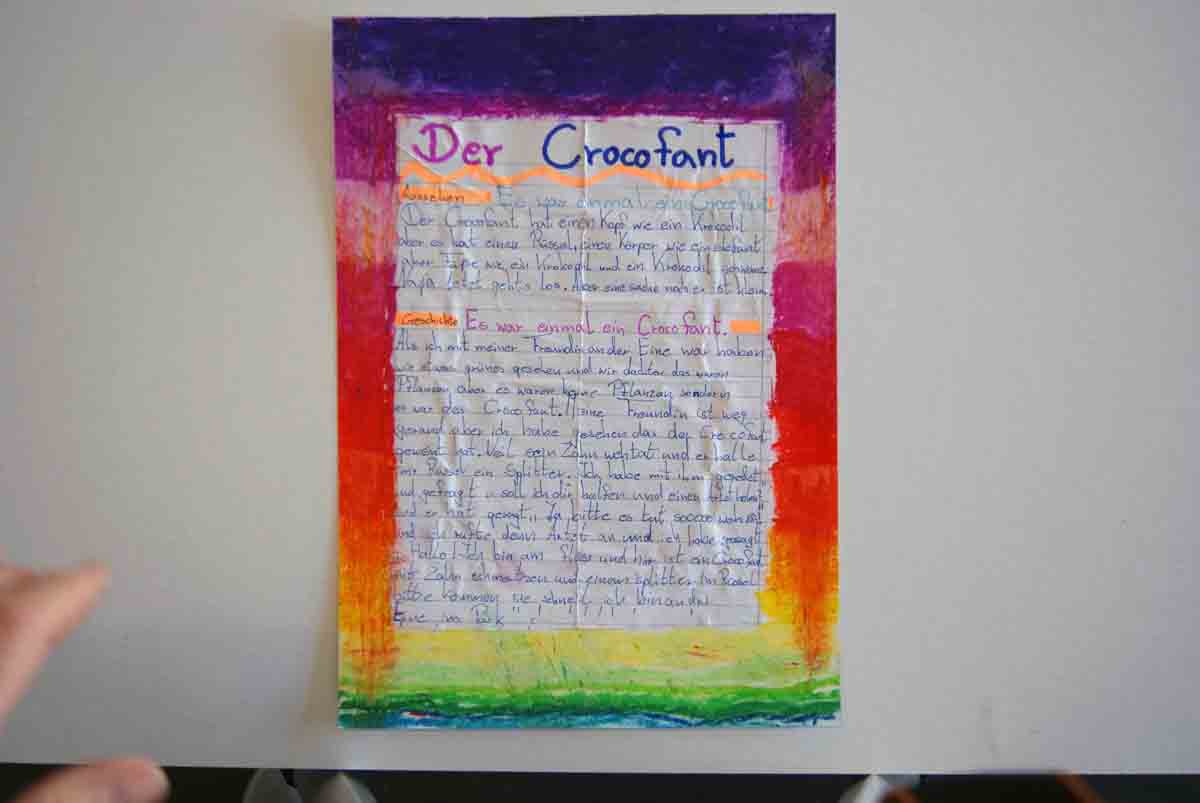 Der Crocofant
Aussehen Es war einmal ein Crocofant
Der Crocofant hat einen Kopf wie ein Krokodil
aber es hat einen Rüssel, einen Körper wie ein elefant
aber Füße wie ein Krokodil und ein Krokodil schwanz
Naja jetzt gehts los. Aber eine sache noch er ist klein.
Geschichte Es war einmal ein Crocofant.
Als ich mit meiner Freundin an der Eine war haben
wir etwas grünes gesehen und wir dachten das waren
Pflanzen aber es waren keine Pflanzen sonderin
es war das Crocofant. Meine Freundin ist weg
gerand aber ich habe gesehen das der Crocofant
geweint hat. Weil sein Zahn wehtat und er hatte
im Rüssel ein Splitter. Ich habe mit ihm geredet
und gefragt soll ich dir helfen und einen
und er hat gesagt,, Ja bitte es tut sooooo
und ich rufte denn Artzt an und ich habe gesagt
Hallo ich bin am und hir ist ein Crocofant
mit Zahn schmertzen und einem splitter Im Rüssel
bitte kommen sie schnell ich bin an der
Eine